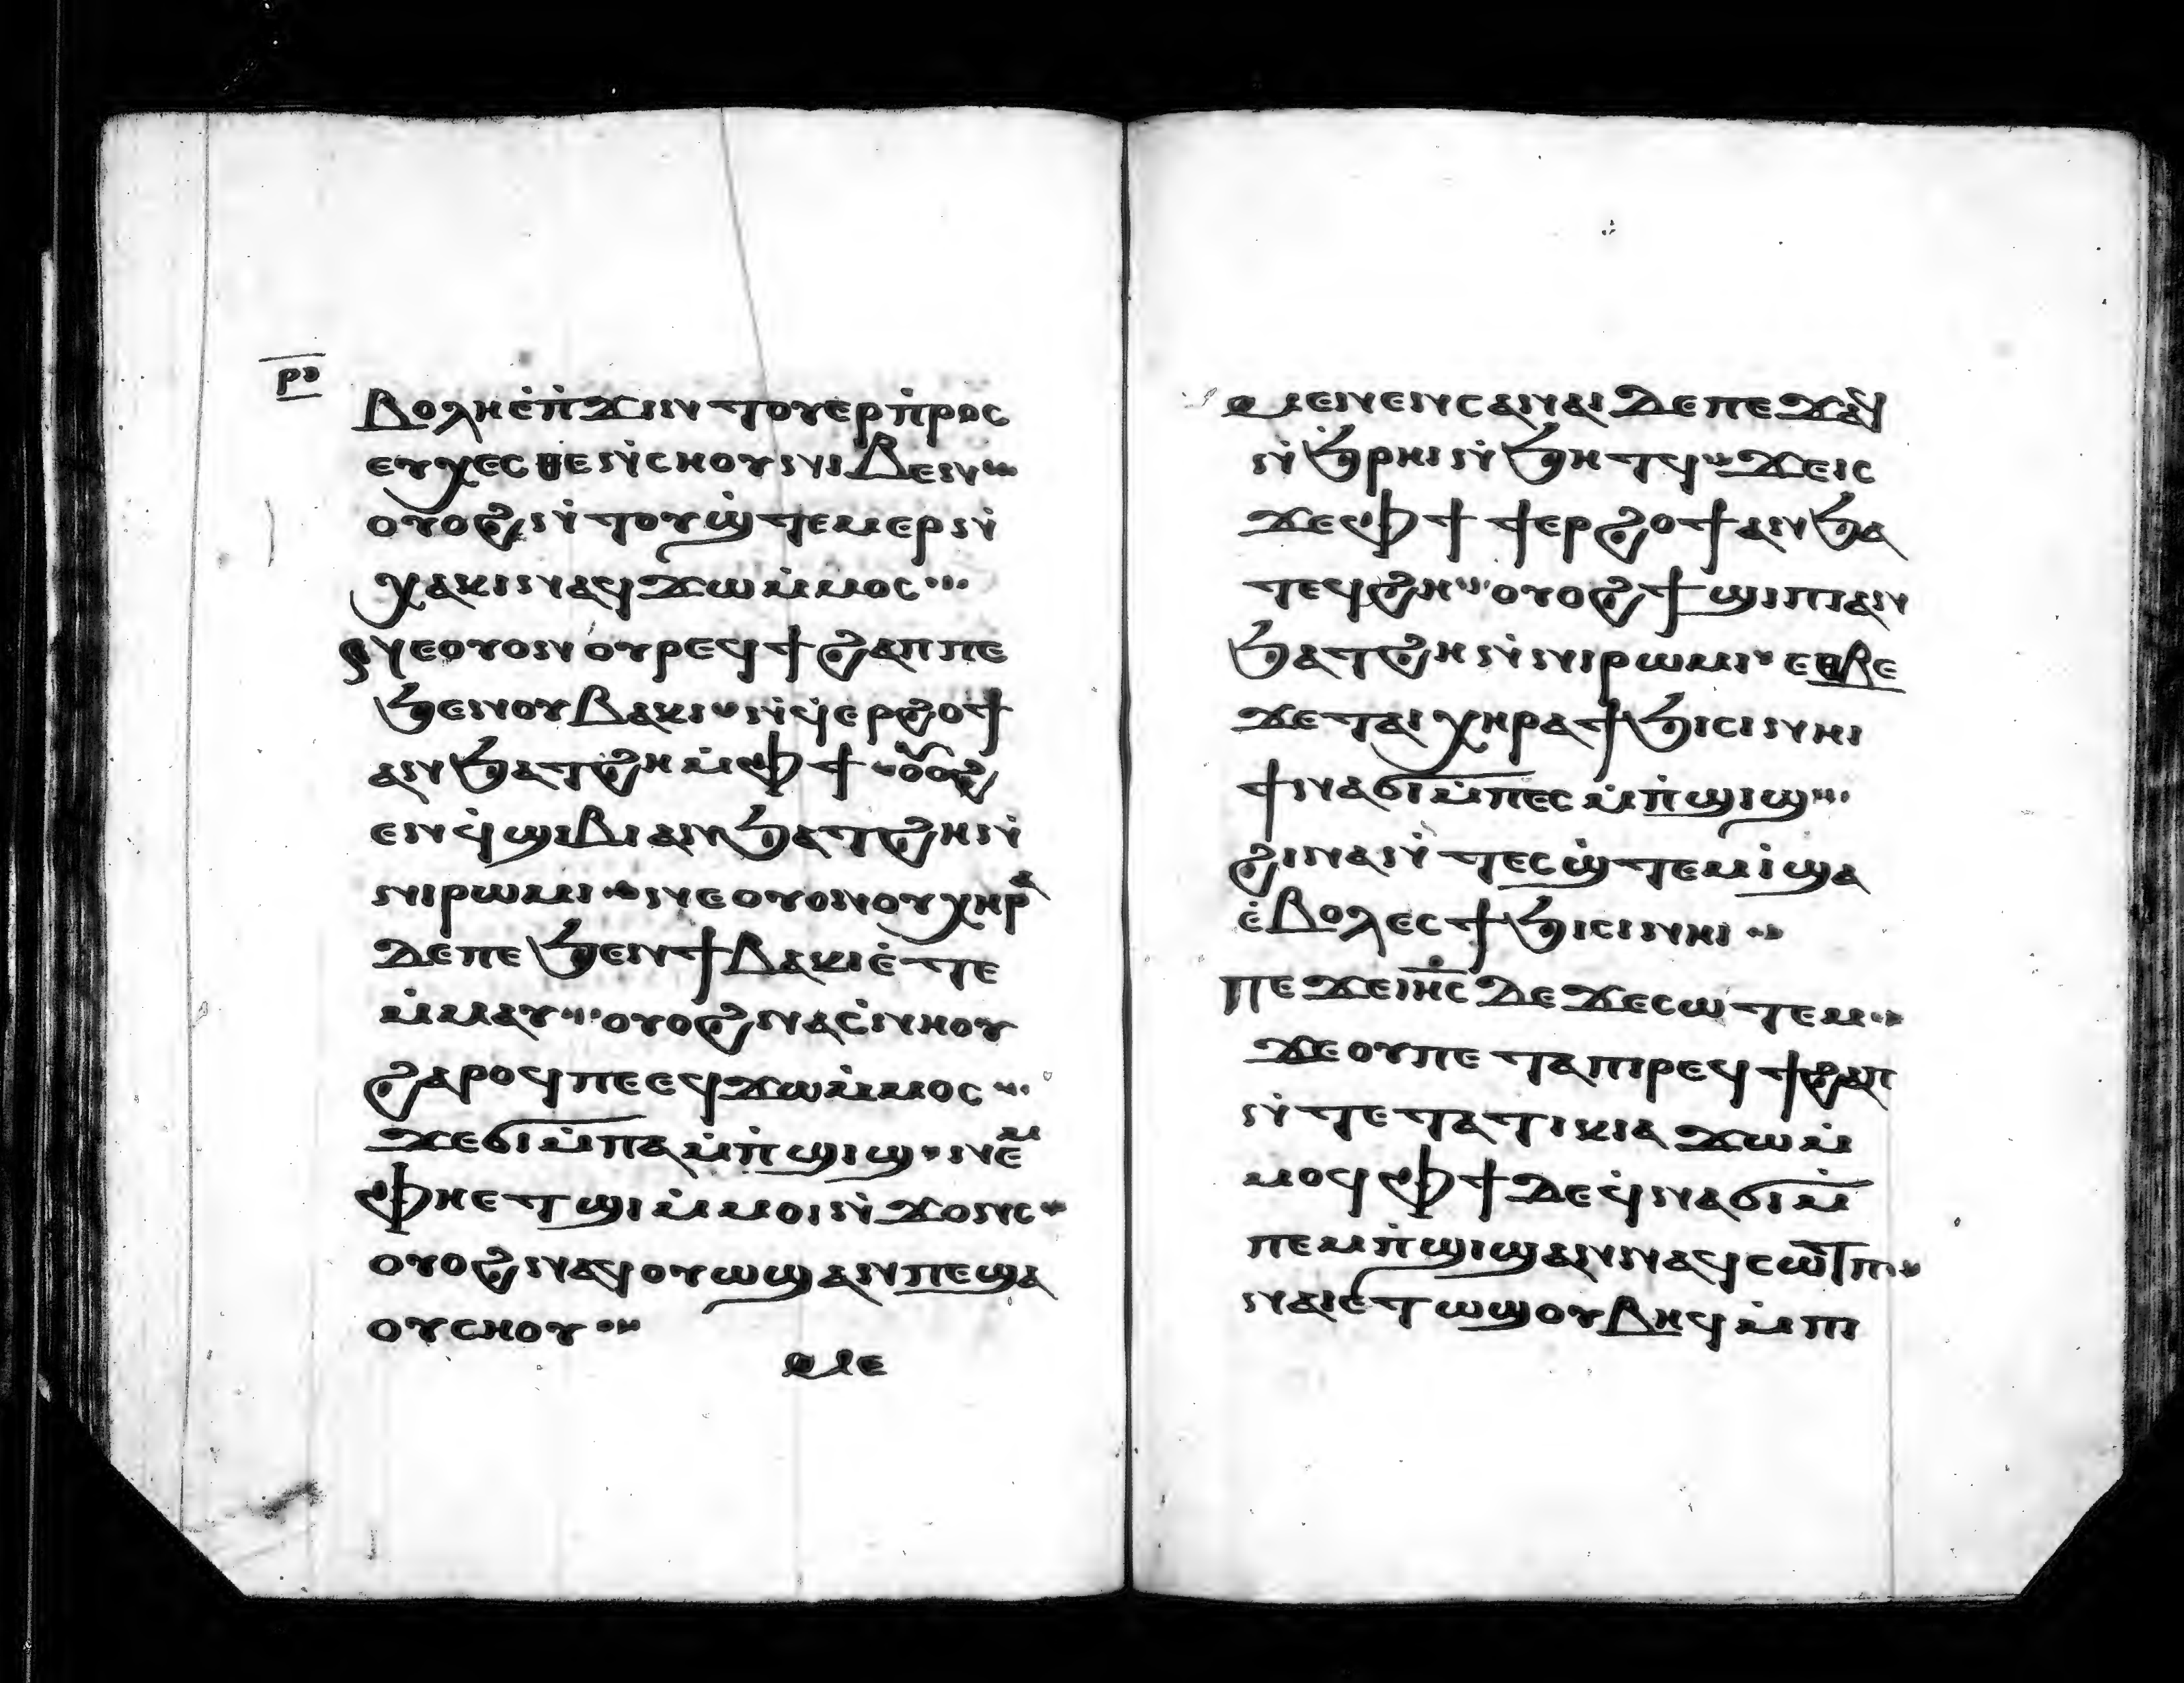 ⲣ︦ⲑ︦
ⲃⲟⲗⲏⲉ̇ⲡ̇ϫⲓⲛⲧⲟⲩⲉⲣⲡ̇ⲣⲟⲥ
ⲉⲩⲭⲉⲥⲑⲉⲛ̇ⲥⲏⲟⲩⲛⲓⲃⲉⲛ
ⲟⲩⲟϩⲛ̇ⲧⲟⲩϣ̇ⲧⲉⲙⲉⲣⲛ̇
ⲭⲁⲕⲓⲛⲁϥϫⲱⲙ̇ⲙⲟⲥ
ⲛⲉⲟⲩⲟⲛⲟⲩⲣⲉϥϯϩⲁⲡⲡⲉ
ϧⲉⲛⲟⲩⲃⲁⲕⲓⲛ̇ϥ̇ⲉⲣϩⲟϯ
ⲁⲛϧⲁⲧϩⲏⲙ̇ⲫϯⲟⲩⲟϩ
ⲉⲛϥ̇ϣⲓⲃⲓⲁⲛϧⲁⲧϩⲏⲛ̇
ⲛⲓⲣⲱⲙⲓⲛⲉⲟⲩⲟⲛⲟⲩⲭⲏⲣⲁ
ⲇⲉⲡⲉϧⲉⲛϯⲃⲁⲕⲓⲉ̇ⲧⲉ
ⲙ̇ⲙⲁⲩⲟⲩⲟϩⲛⲁⲥ̇ⲛⲏⲟⲩ
ϩⲁⲣⲟϥⲡⲉⲉϥϫⲱⲙ̇ⲙⲟⲥ
ϫⲉϭⲓⲙ̇ⲡⲁⲙ̇ⲡ̇ϣⲓϣⲛⲉⲙ
ⲫⲏⲉⲧϣⲓⲙ̇ⲙⲟⲓⲛ̇ϫⲟⲛⲥ
ⲟⲩⲟϩⲛⲁϥⲟⲩⲱϣⲁⲛⲡⲉϣⲁ
ⲟⲩⲥⲏⲟⲩ
ⲙⲉ
ⲙⲉⲛⲉⲛⲥⲁⲛⲁⲓⲇⲉⲡⲉϫⲁϥ
ⲛ̇ϧ̇ⲣⲏⲓⲛ̇ϧⲏⲧϥϫⲉⲓⲥ
ϫⲉⲫϯϯⲉⲣϩⲟϯⲁⲛϧⲁ
ⲧⲉϥϩⲏⲟⲩⲟϩϯϣⲓⲡⲓⲁⲛ
ϧⲁⲧϩⲏⲛ̇ⲛⲓⲣⲱⲙⲓⲉⲑⲃⲉ
ϫⲉⲧⲁⲓⲭⲏⲣⲁϯϧⲓⲥⲓⲛⲏⲓ
ϯⲛⲁϭⲓⲙ̇ⲡⲉⲥⲙ̇ⲡ̇ϣⲓϣ
ϩⲓⲛⲁⲛ̇ⲧⲉⲥϣ̇ⲧⲉⲙⲓ̇ϣⲁ
ⲉ̇ⲃⲟⲗⲉⲥϯϧⲓⲥⲓⲛⲏⲓ
ⲡⲉϫⲉⲓⲏ̅ⲥ̅ⲇⲉϫⲉⲥⲱⲧⲉⲙ
ϫⲉⲟⲩⲡⲉⲧⲁⲡⲓⲣⲉϥϯϩⲁⲡ
ⲛ̇ⲧⲉⲧⲁⲧⲓⲕⲓⲁϫⲱⲙ̇
ⲙⲟϥⲫϯⲇⲉϥ̇ⲛⲁϭⲓⲙ̇
ⲡⲉⲙⲡ̇ϣⲓϣⲁⲛⲛⲁϥⲥⲱⲧⲡ
ⲛⲁⲓⲉⲧⲱϣⲟⲩⲃⲏϥⲙ̇ⲡⲓ